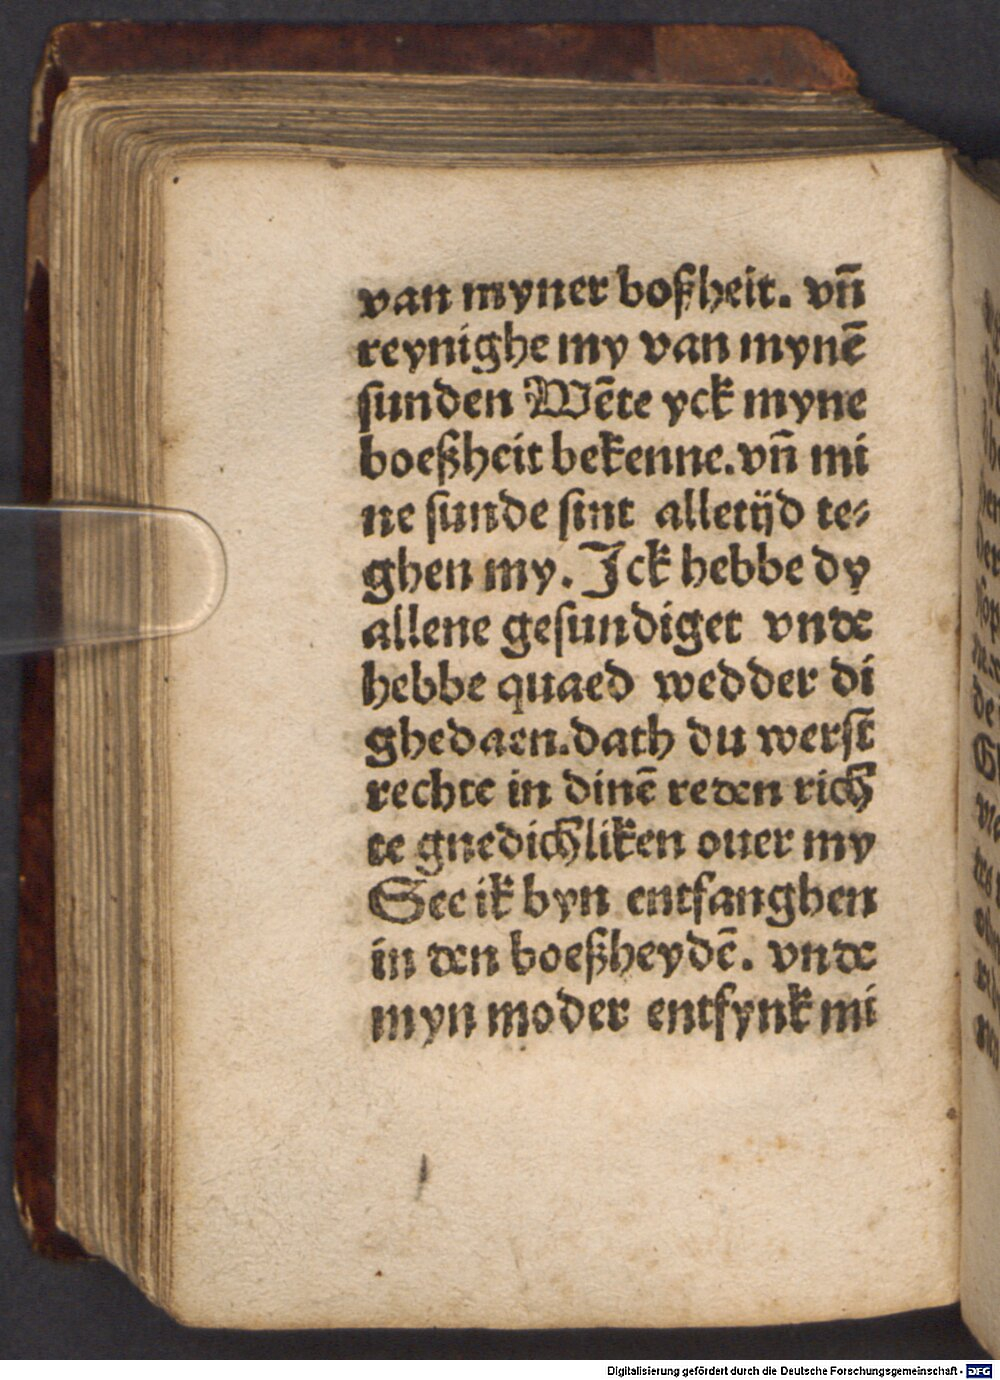 van myner boßheit. vn̄
reynighe my van mynē
sunden Wēte yck myne
boeßheit bekenne. vn̄ mi
ne sunde sint alletijd te⸗
ghen my. Jck hebbe dy
allene gesundiget vnde
hebbe quaed wedder di
ghedaen. dath du werst
rechte in dinē reden rich
te gnedichliken ouer my
See ik byn entfanghen
in den boeßheydē. vnde
myn moder entfynk mi
Digitalisierung gefördert durch die Deutsche Forschungsgemeinschaft - DFG